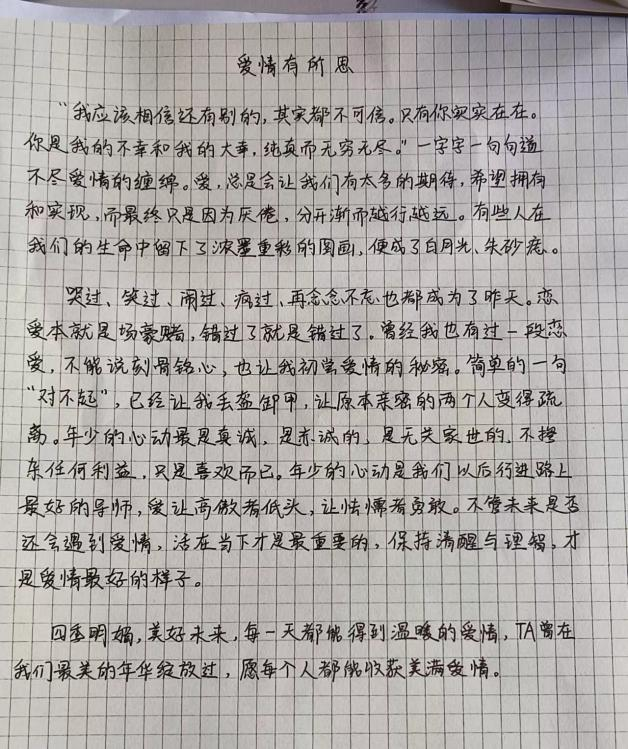 爱情有所思
“我应该相信还有别的，其实都不可信。只有你实实在在。
你是我的不幸和我的大幸，纯真而无穷无尽。”一字字一句句道
不尽爱情的缠绵。爱，总是会让我们有太多的期待，希望拥有
和实现，而最终只是因为厌倦，分开渐而越行越远。有些人在
我们的生命中留下了浓墨重彩的图画，便成了白月光、朱砂痣。
哭过、笑过、闹过、疯过、再念念不忘也都成为了昨天。恋
爱本就是场豪赌，错过了就是错过了。曾经我也有过一段恋
爱，不能说刻骨铭心，也让我初尝爱情的秘密。简单的一句
“对不起”，已经让我丢盔卸甲，让原本亲密的两个人变得疏
离。年少的心动最是真诚，是赤诚的，是无关家世的，不掺
杂任何利益，只是喜欢而已。年少的心动是我们以后行进路上
最好的导师，爱让高傲者低头，让怯懦者勇敢。不管未来是否
还会遇到爱情，活在当下才是最重要的，保持清醒与理智，才
是爱情最好的样子。
四季明媚，美好未来，每一天都能得到温暖的爱情，TA曾在
我们最美的年华绽放过，愿每个人都能收获美满爱情。